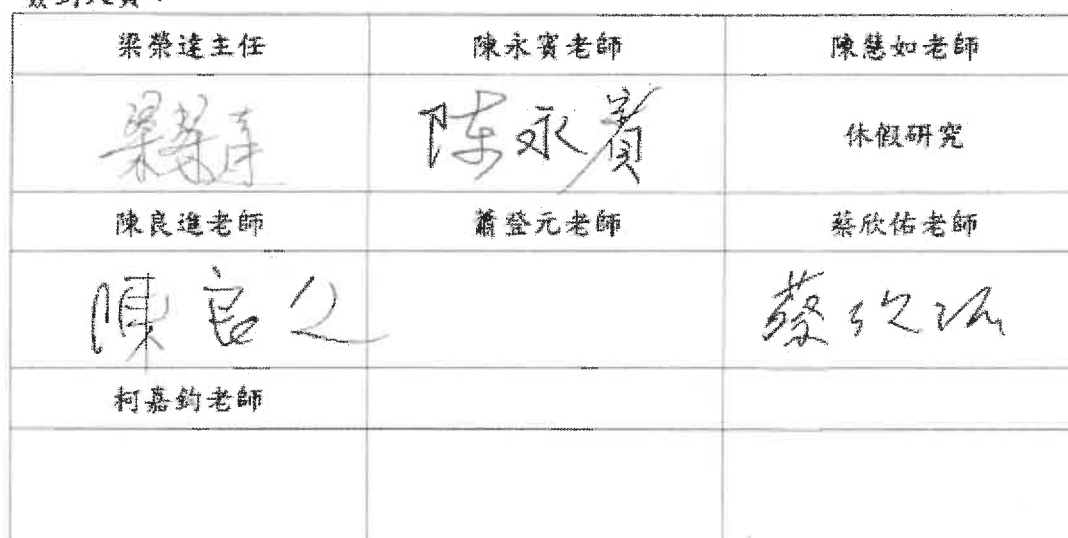 梁榮達主任 陳永賓老師 陳慧如老師
梁榮達 陈永賓 休假研究
陳良進老師 蕭登元老師 蔡欣佑老師
陳良 蔡欣
柯嘉鈞老師